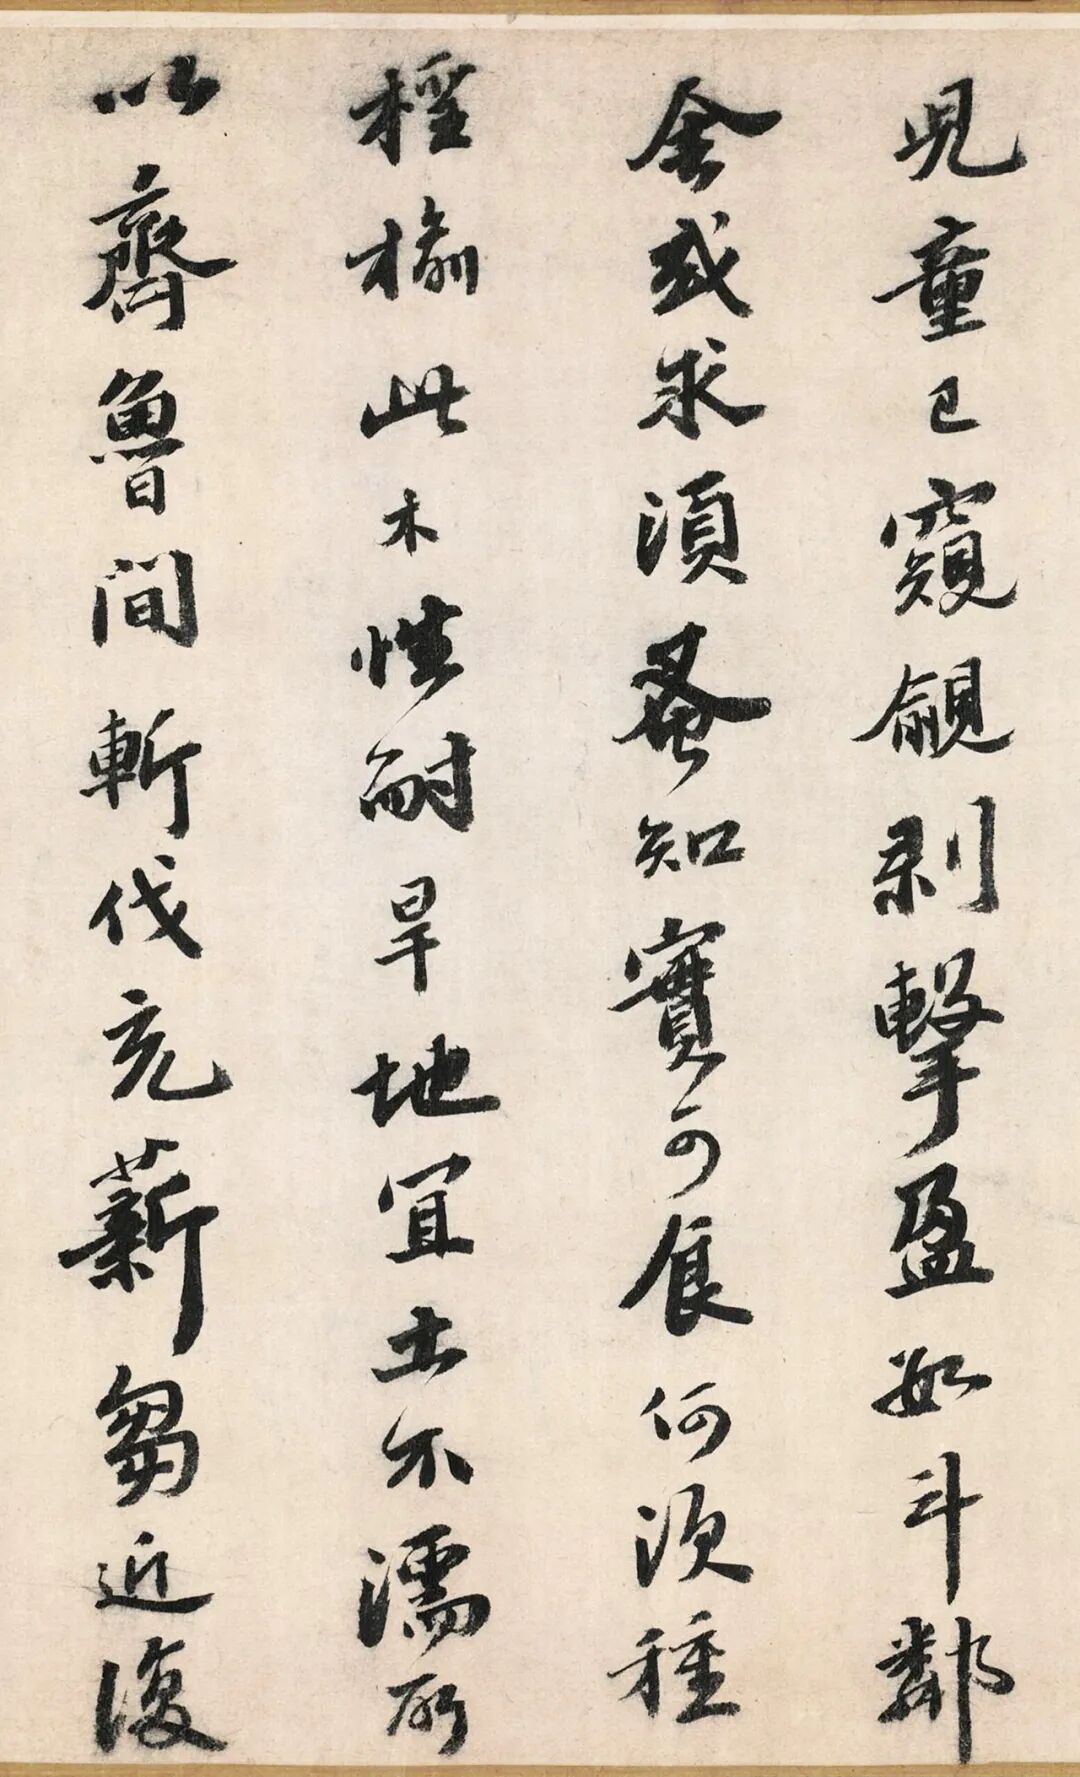 兒童已窺覦剥擊盈如斗鄰
舍或求須蚤知實可食何須種
桎榆此木性耐旱地宜土不濡所
以齊魯間斬伐充薪芻近復